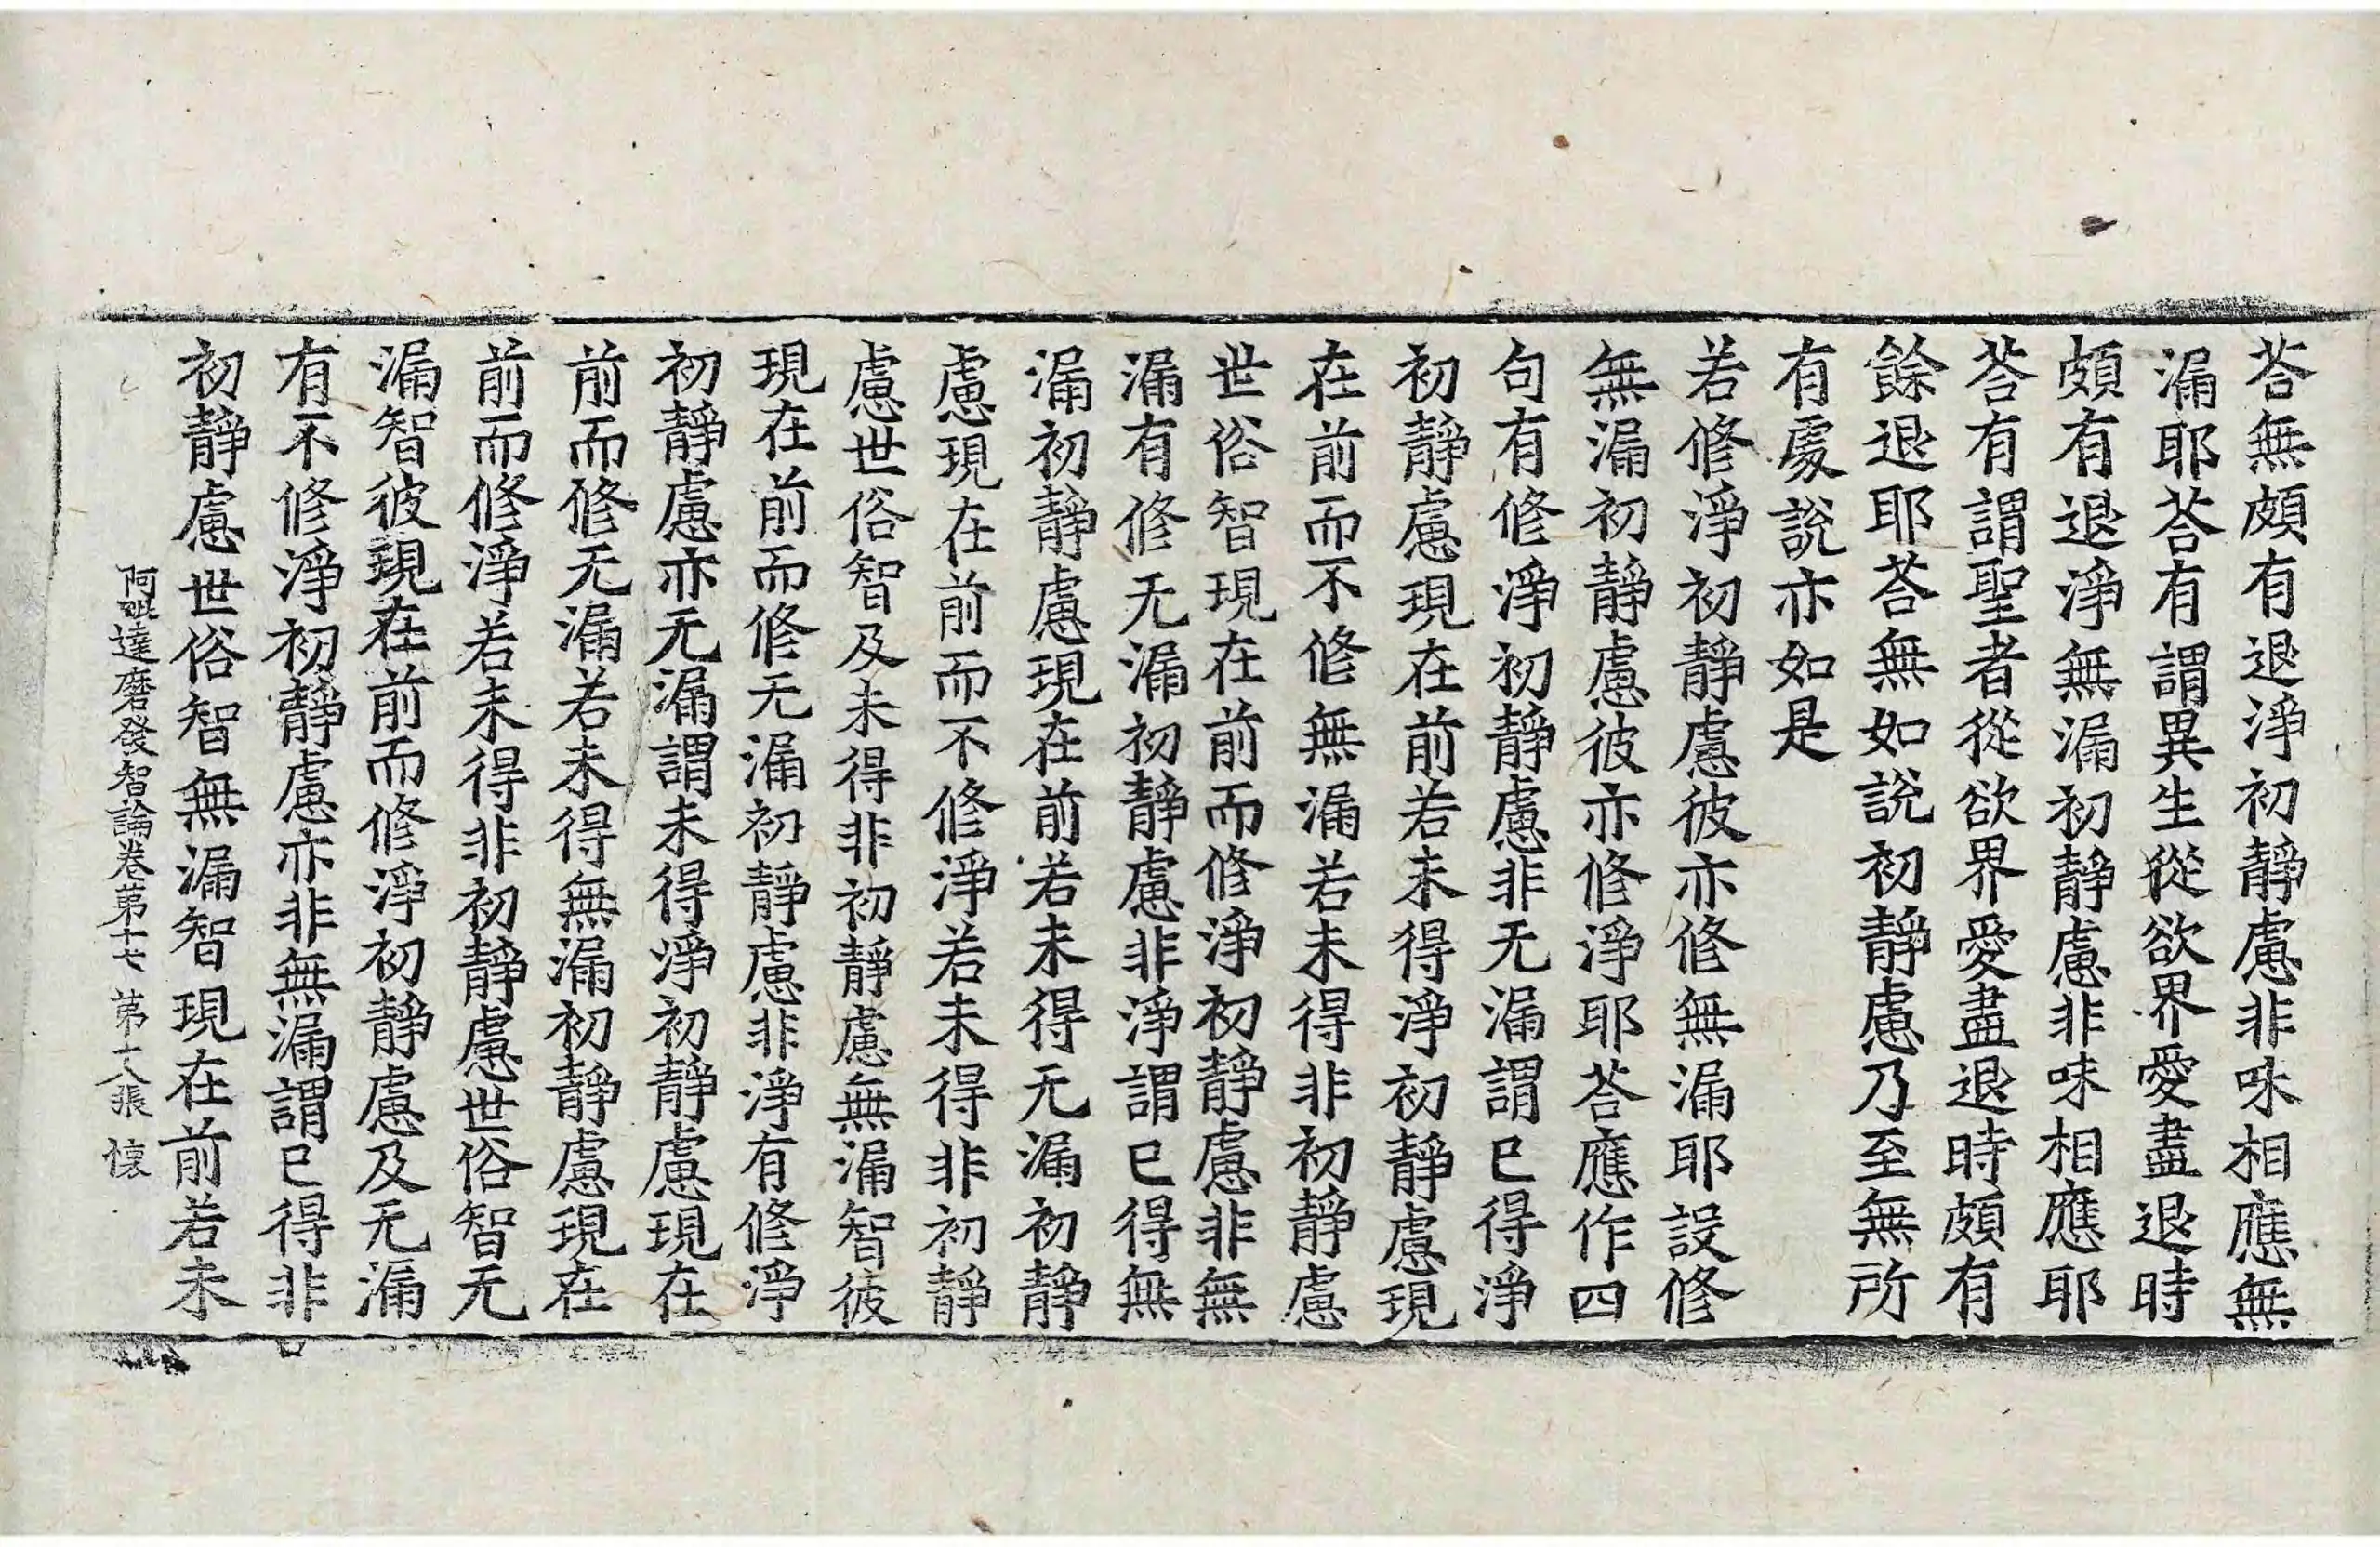 荅無頗有退淨初靜慮非味相應無
漏耶荅有謂異生從欲界愛盡退時
頗有退淨無漏初靜慮非味相應耶
荅有謂聖者從欲界愛盡退時頗有
餘退耶荅無如說初靜慮乃至無所
有處說亦如是
若修淨初靜慮彼亦修無漏耶設修
無漏初靜慮彼亦修淨耶荅應作四
句有修淨初靜慮非无漏謂已得淨
初靜慮現在前若未得淨初靜慮現
在前而不修無漏若未得非初靜慮
世俗智現在前而修淨初靜慮非無
漏有修无漏初靜慮非淨謂已得無
漏初靜慮現在前若未得无漏初靜
慮現在前而不修淨若未得非初靜
慮世俗智及未得非初靜慮無漏智彼
現在前而修无漏初靜慮非淨有修淨
初靜慮亦无漏謂未得淨初靜慮現在
前而修无漏若未得無漏初靜慮現在
前而修淨若未得非初靜慮世俗智无
漏智彼現在前而修淨初靜慮及无漏
有不修淨初靜慮亦非無漏謂已得非
初靜慮世俗智無漏智現在前若未
阿毗達磨發智論卷第十七 第十八張 懷